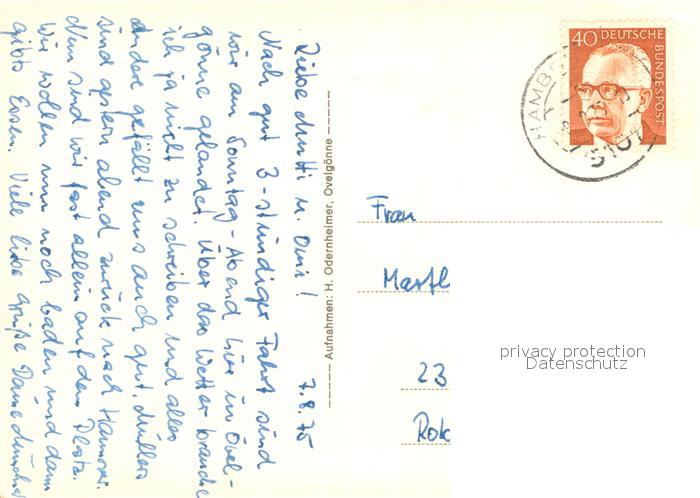 Liebe Mutti u. Omi!
7.8.75
Nach gut 3-stündiger Fahrt sind
wir am Sonntag-Abend hier in Ovel-
gönne gelandet. Über das Wetter brauche
ich ja nicht zu schreiben und alles
andere gefällt uns auch gut. Müllers
sind gestern abend zurück nach Hannover.
Nun sind wir fast allein auf dem Platz.
Wir wollen nun noch baden und dann
gibts Essen. Viele liebe Grüße
Aufnahmen: H. Odernheimer, Ovelgönne
40 DEUTSCHE
BUNDESPOST
HAMB
Frau
23
privacy protection
Datenschutz